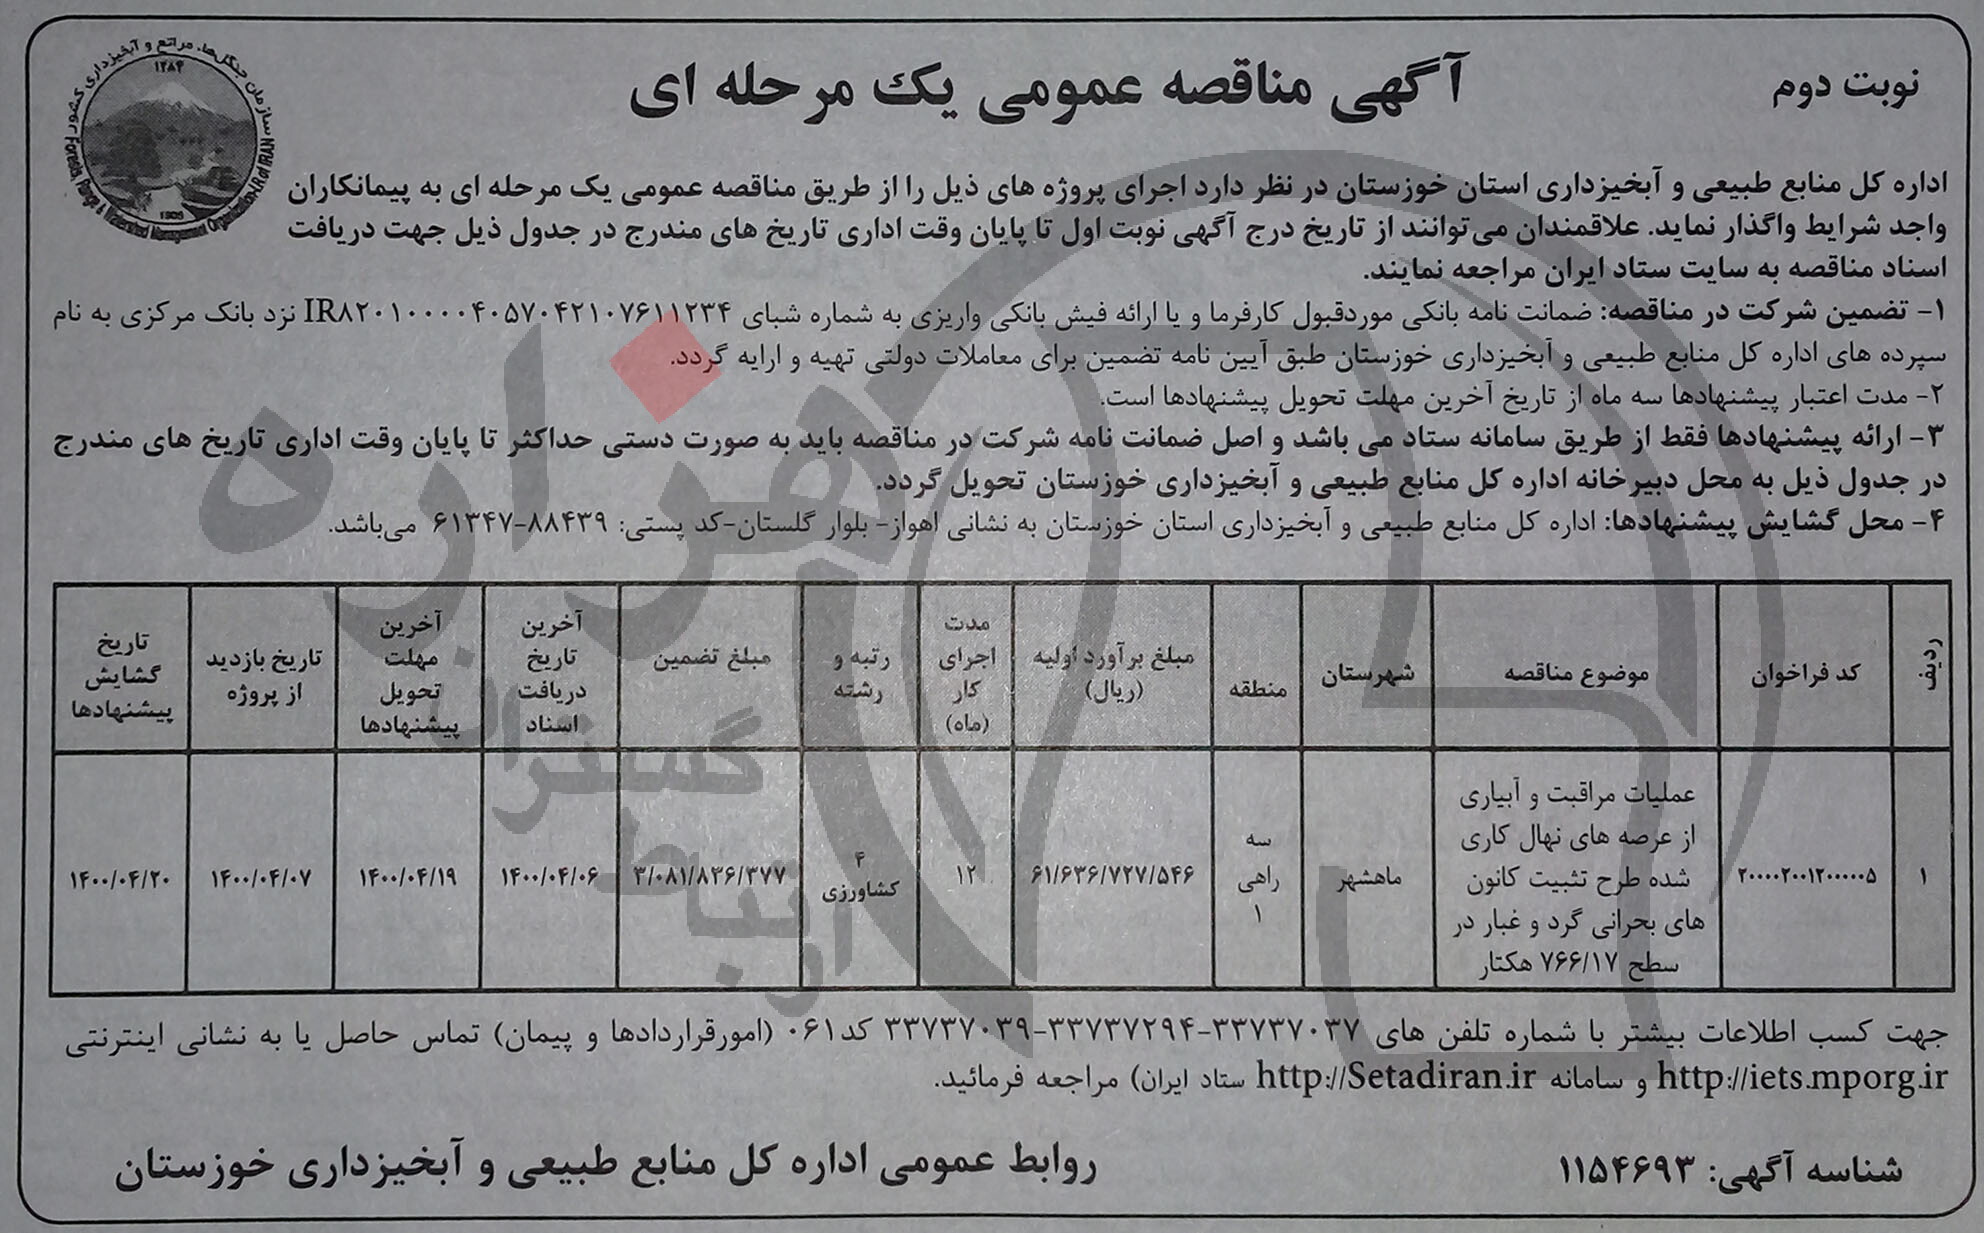 نوبت دوم
آگهی مناقصه عمومی یک مرحله ای
سازمان جنگل‌ها، مراتع و آبخیزداری کشور
۱۲۸۴
1905
Forests, Range & Watershed Management Organization-I.R of IRAN
اداره کل منابع طبیعی و آبخیزداری استان خوزستان در نظر دارد اجرای پروژه های ذیل را از طریق مناقصه عمومی یک مرحله ای به پیمانکاران
واجد شرایط واگذار نماید. علاقمندان می‌توانند از تاریخ درج آگهی نوبت اول تا پایان وقت اداری تاریخ های مندرج در جدول ذیل جهت دریافت
اسناد مناقصه به سایت ستاد ایران مراجعه نمایند.
۱- تضمین شرکت در مناقصه: ضمانت نامه بانکی موردقبول کارفرما و یا ارائه فیش بانکی واریزی به شماره شبای IR۸۲۰۱۰۰۰۰۴۰۵۷۰۴۲۱۰۷۶۱۱۲۳۴ نزد بانک مرکزی به نام
سپرده های اداره کل منابع طبیعی و آبخیزداری خوزستان طبق آیین نامه تضمین برای معاملات دولتی تهیه و ارایه گردد.
۲- مدت اعتبار پیشنهادها سه ماه از تاریخ آخرین مهلت تحویل پیشنهادها است.
۳- ارائه پیشنهادها فقط از طریق سامانه ستاد می باشد و اصل ضمانت نامه شرکت در مناقصه باید به صورت دستی حداکثر تا پایان وقت اداری تاریخ های مندرج
در جدول ذیل به محل دبیرخانه اداره کل منابع طبیعی و آبخیزداری خوزستان تحویل گردد.
۴- محل گشایش پیشنهادها: اداره کل منابع طبیعی و آبخیزداری استان خوزستان به نشانی اهواز- بلوار گلستان-کد پستی: ۸۸۴۳۹-۶۱۳۴۷ می‌باشد.
ردیف
کد فراخوان
موضوع مناقصه
شهرستان
منطقه
مبلغ برآورد اولیه
(ریال)
مدت
اجرای
کار
(ماه)
رتبه و
رشته
مبلغ تضمین
آخرین
تاریخ
دریافت
اسناد
آخرین
مهلت
تحویل
پیشنهادها
تاریخ بازدید
از پروژه
تاریخ
گشایش
پیشنهادها
۱
۲۰۰۰۰۲۰۰۱۲۰۰۰۰۰۵
عملیات مراقبت و آبیاری
از عرصه های نهال کاری
شده طرح تثبیت کانون
های بحرانی گرد و غبار در
سطح ۷۶۶/۱۷ هکتار
ماهشهر
سه
راهی
۱
۶۱/۶۳۶/۷۲۷/۵۴۶
۱۲
۴
کشاورزی
۳/۰۸۱/۸۳۶/۳۷۷
۱۴۰۰/۰۴/۰۶
۱۴۰۰/۰۴/۱۹
۱۴۰۰/۰۴/۰۷
۱۴۰۰/۰۴/۲۰
جهت کسب اطلاعات بیشتر با شماره تلفن های ۳۳۷۳۷۰۳۷-۳۳۷۳۷۲۹۴-۳۳۷۳۷۰۳۹ کد۰۶۱ (امورقراردادها و پیمان) تماس حاصل یا به نشانی اینترنتی
http://iets.mporg.ir و سامانه http://Setadiran.ir ستاد ایران) مراجعه فرمائید.
شناسه آگهی: ۱۱۵۴۶۹۳
روابط عمومی اداره کل منابع طبیعی و آبخیزداری خوزستان
هزاره
ارتباط
گستران